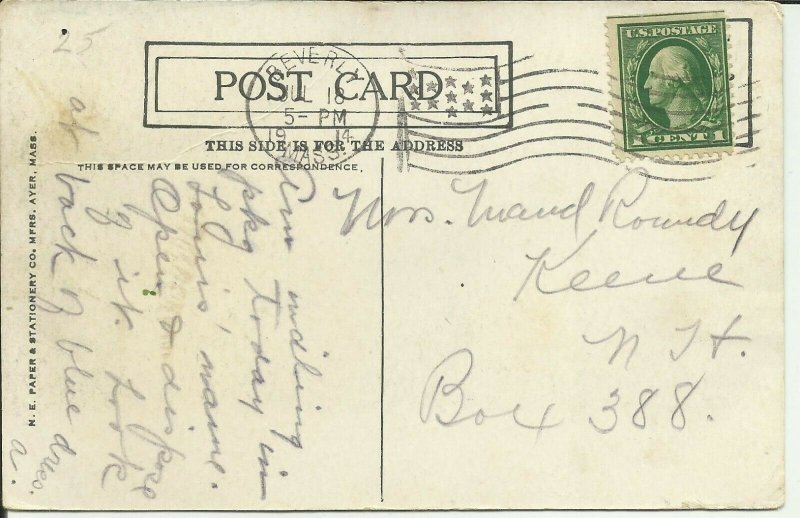 25
POST CARD
BEVERLY
JUL 18
5- PM
19 14
MASS.
U.S. POSTAGE
1 CENT 1
THIS SIDE IS FOR THE ADDRESS
THIS SPACE MAY BE USED FOR CORRESPONDENCE.
N. E. PAPER & STATIONERY CO. MFRS. AYER, MASS.
Am mailing
pkg today in
Louis' name.
Open & dispose
of it. Look
at back of blue dress.
a.
Mrs. Maud Roundy
Keene
N H.
Box 388.